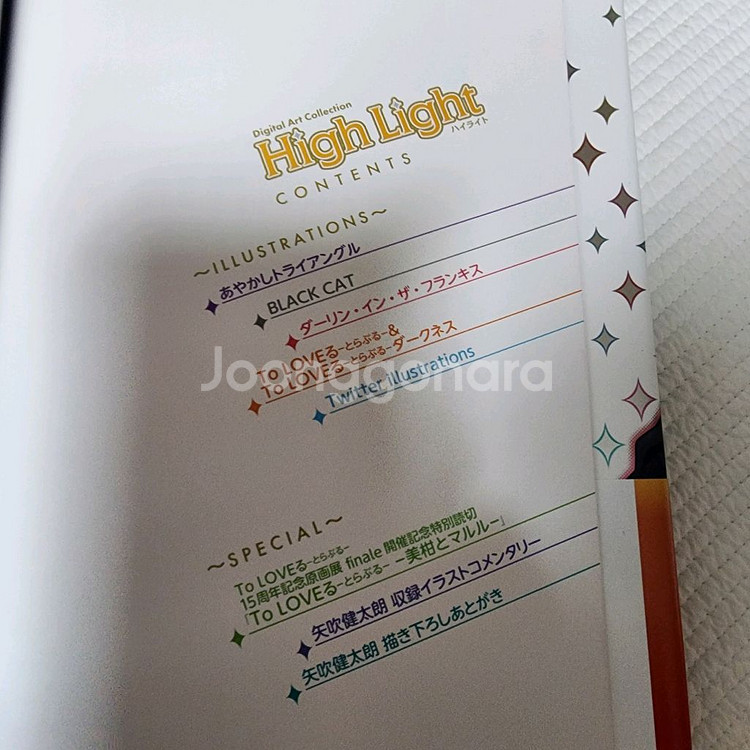 Digital Art Collection
High Light
ハイライト
CONTENTS
～ILLUSTRATIONS～
あやかしトライアングル
BLACK CAT
ダーリン・イン・ザ・フランキス
To LOVEる－とらぶる－&
To LOVEる－とらぶる－ダークネス
Twitter illustrations
Joonggonara
～SPECIAL～
To LOVEる－とらぶる－
15周年記念原画展 finale 開催記念特別読切
『To LOVEる－とらぶる－ －美柑とマルル－』
矢吹健太朗 収録イラストコメンタリー
矢吹健太朗 描き下ろしあとがき